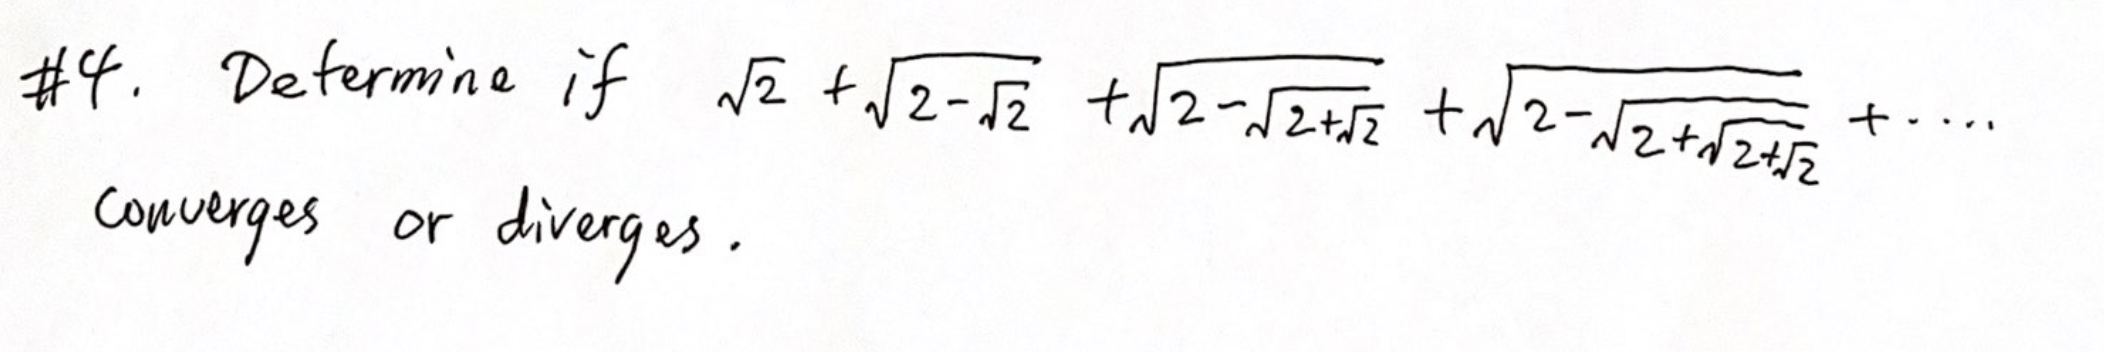 #4. Determine if √2 + √(2-√2) + √(2-√(2+√2)) + √(2-√(2+√(2+√2))) + ....
converges or diverges.